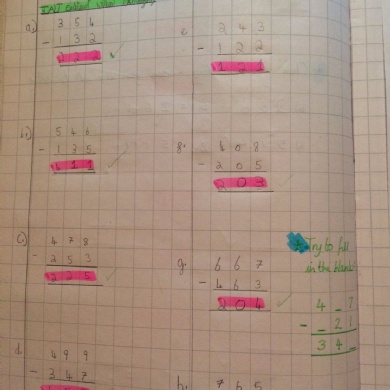 a)
354
- 132
222
e
243
- 122
121
b)
546
- 135
411
408
- 205
203
c)
478
- 253
225
g.
667
- 463
204
Try to fill
in the blank
4 _ 7
- _ 2 1
3 4 _
d
499
- 347
h.
765